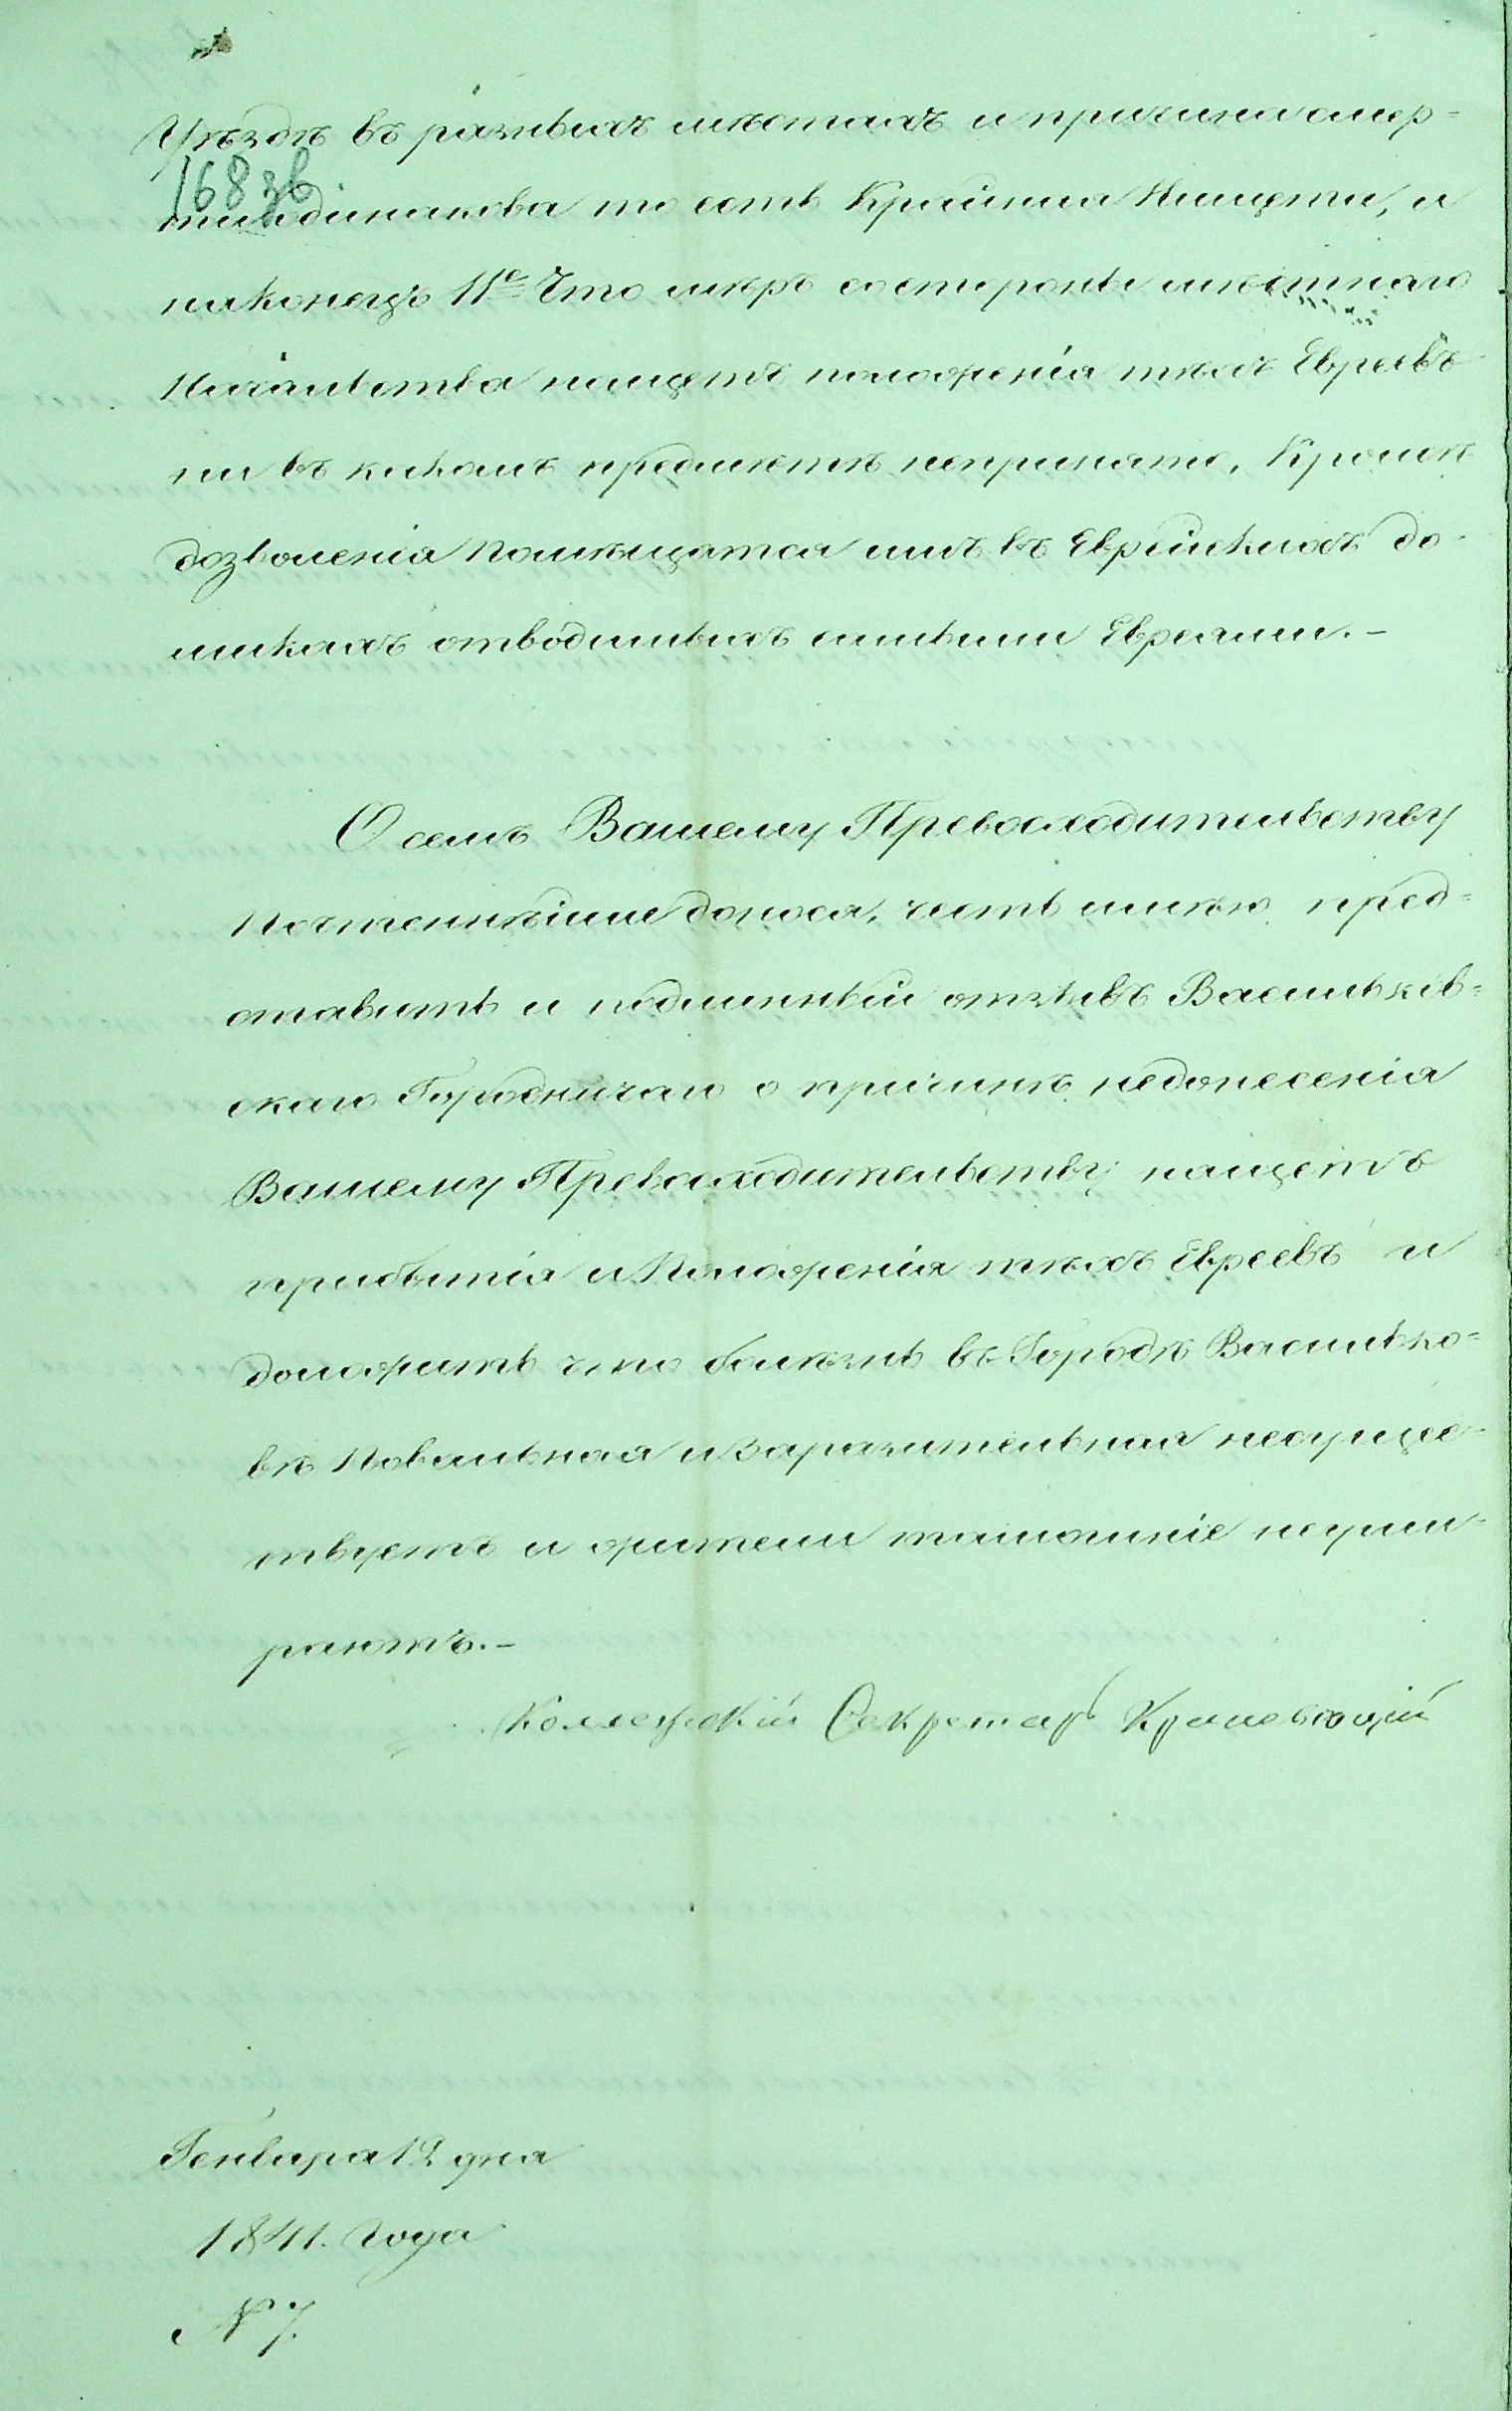 Уѣздѣ въ разныхъ мѣстахъ и причина смер=
168 зв.
ти одинакова то есть Крайняя Нищета, и
наконецъ 11е Что мѣръ со стороны мѣстнаго
Начальства нащетъ положенія тѣхъ Евреевъ
ни въ какомъ предметѣ непринято, Кромѣ
дозволенія Помѣщатся имъ въ Еврейскихъ до-
микахъ отводимыхъ самыми Евреями.-
О семъ Вашему Превосходительству
Почтеннѣйше донося, честь имѣю пред=
ставить и подлинный отзывъ Васильков=
скаго Городничаго о причинѣ недонесенія
Вашему Превосходительству нащетъ
прибытія и Положенія тѣхъ Евреевъ и
доложить что болѣзнь въ Городѣ Василько=
вѣ Повальная и Заразительная несущес=
твуетъ и жители тамошніе неуми=
раютъ.-
Коллежскій Секретарь
Генваря 12 дня
1841. Года
№ 7.